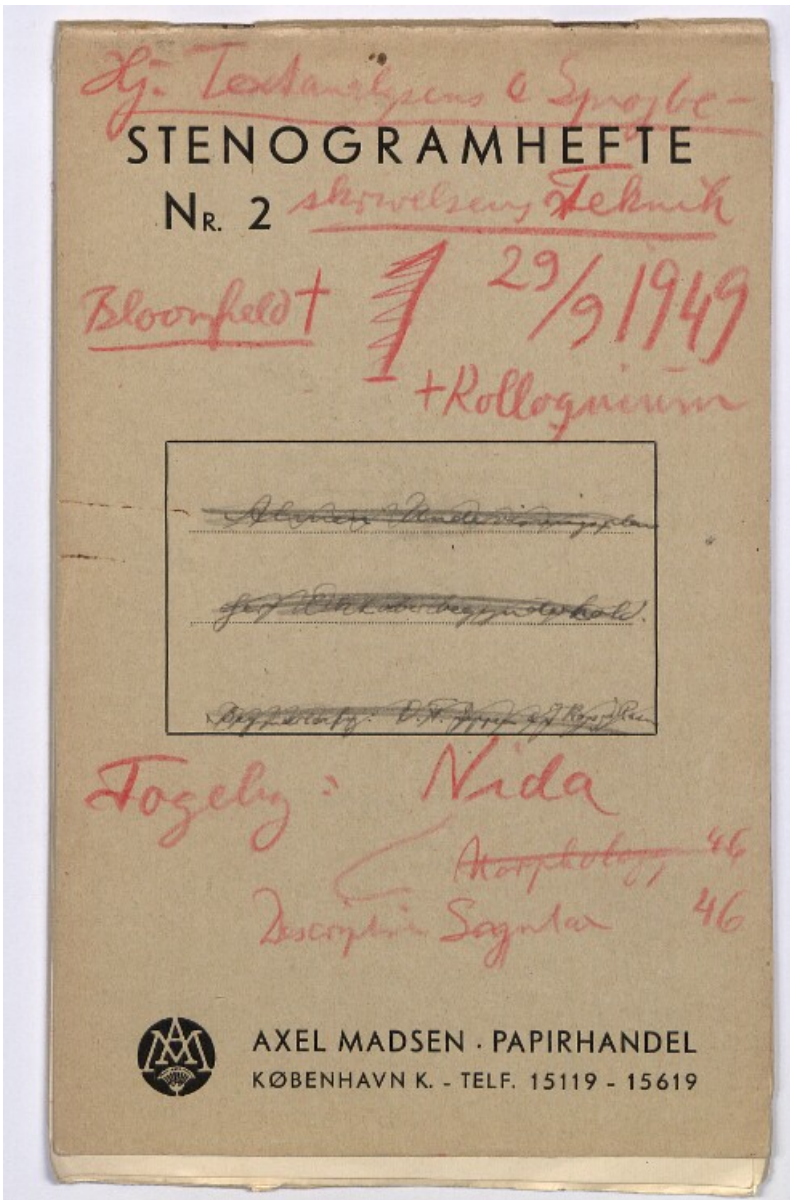 Hj. Textanalysens & Sprogbe-
STENOGRAMHEFTE
NR. 2 skrivelsens Teknik
Bloomfield † 1 29/9 1949
+ Kolloquium
Almen Undervisningsplan
for
Togeby: Nida
Morphology 46
Descriptive Syntax 46
AXEL MADSEN · PAPIRHANDEL
KØBENHAVN K. - TELF. 15119 - 15619